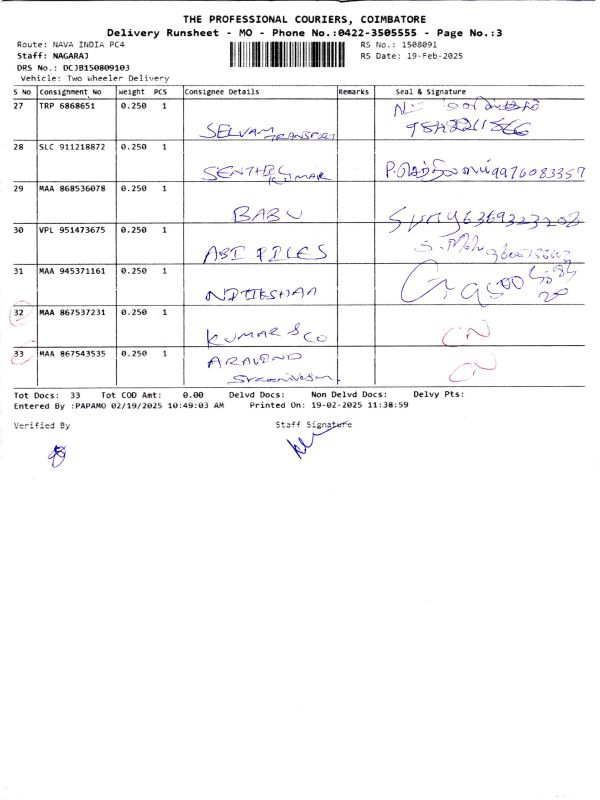 THE PROFESSIONAL COURIERS, COIMBATORE
Delivery Runsheet - MO - Phone No.:0422-3505555 - Page No.:3
Route: NAVA INDIA PC4
RS No.: 1508091
Staff: NAGARAJ
RS Date: 19-Feb-2025
DRS No.: DCJB150809103
Vehicle: Two Wheeler Delivery
S No Consignment_No Weight PCS Consignee Details Remarks Seal & Signature
27 TRP 6868651 0.250 1
SELVAM TRANSPORT
28 SLC 911218872 0.250 1
SENTHIL KUMAR 9976083357
29 MAA 868536078 0.250 1
BABU
30 VPL 951473675 0.250 1
ABI FILES
31 MAA 945371161 0.250 1
NITIESHAA
32 MAA 867537231 0.250 1
KUMAR & CO CN
33 MAA 867543535 0.250 1
ARAVIND CN
Tot Docs: 33 Tot COD Amt: 0.00 Delvd Docs: Non Delvd Docs: Delvy Pts:
Entered By :PAPAMO 02/19/2025 10:49:03 AM Printed On: 19-02-2025 11:38:59
Verified By
Staff Signature